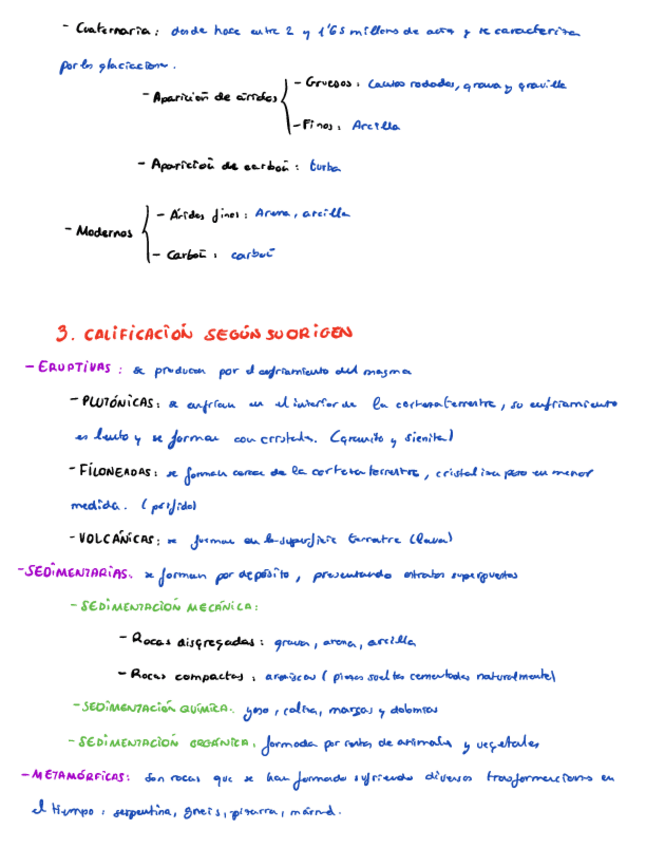 - Cuaternaria: desde hace entre 2 y 1'65 millons de años y se caracteriza
por las glaciaciones.
- Aparición de áridos
- Gruesos: Cantos rodados, grava y gravilla
- Finos: Arcilla
- Aparición de carbón: turba
- Modernos
- Áridos finos: Arena, arcilla
- Carbón: carbón
3. CALIFICACIÓN SEGÚN SU ORIGEN
- ERUPTIVAS: se producen por el enfriamiento del magma
- PLUTÓNICAS: se enfrían en el interior de la corteza terrestre, su enfriamiento
es lento y se forman con cristales. (granito y sienita)
- FILONEADAS: se forman cerca de la corteza terrestre, cristaliza pero en menor
medida. (pórfido)
- VOLCÁNICAS: se forman en la superficie terrestre (lava)
- SEDIMENTARIAS: se forman por depósito, presentando estratos superpuestos
- SEDIMENTACIÓN MECÁNICA:
- Rocas disgregadas: grava, arena, arcilla
- Rocas compactas: areniscas (piezas sueltas cementadas naturalmente)
- SEDIMENTACIÓN QUÍMICA: yeso, caliza, margas y dolomías
- SEDIMENTACIÓN ORGÁNICA: formada por restos de animales y vegetales
- METAMÓRFICAS: son rocas que se han formado sufriendo diversas trasformaciones en
el tiempo: serpentina, gneis, pizarra, mármol.